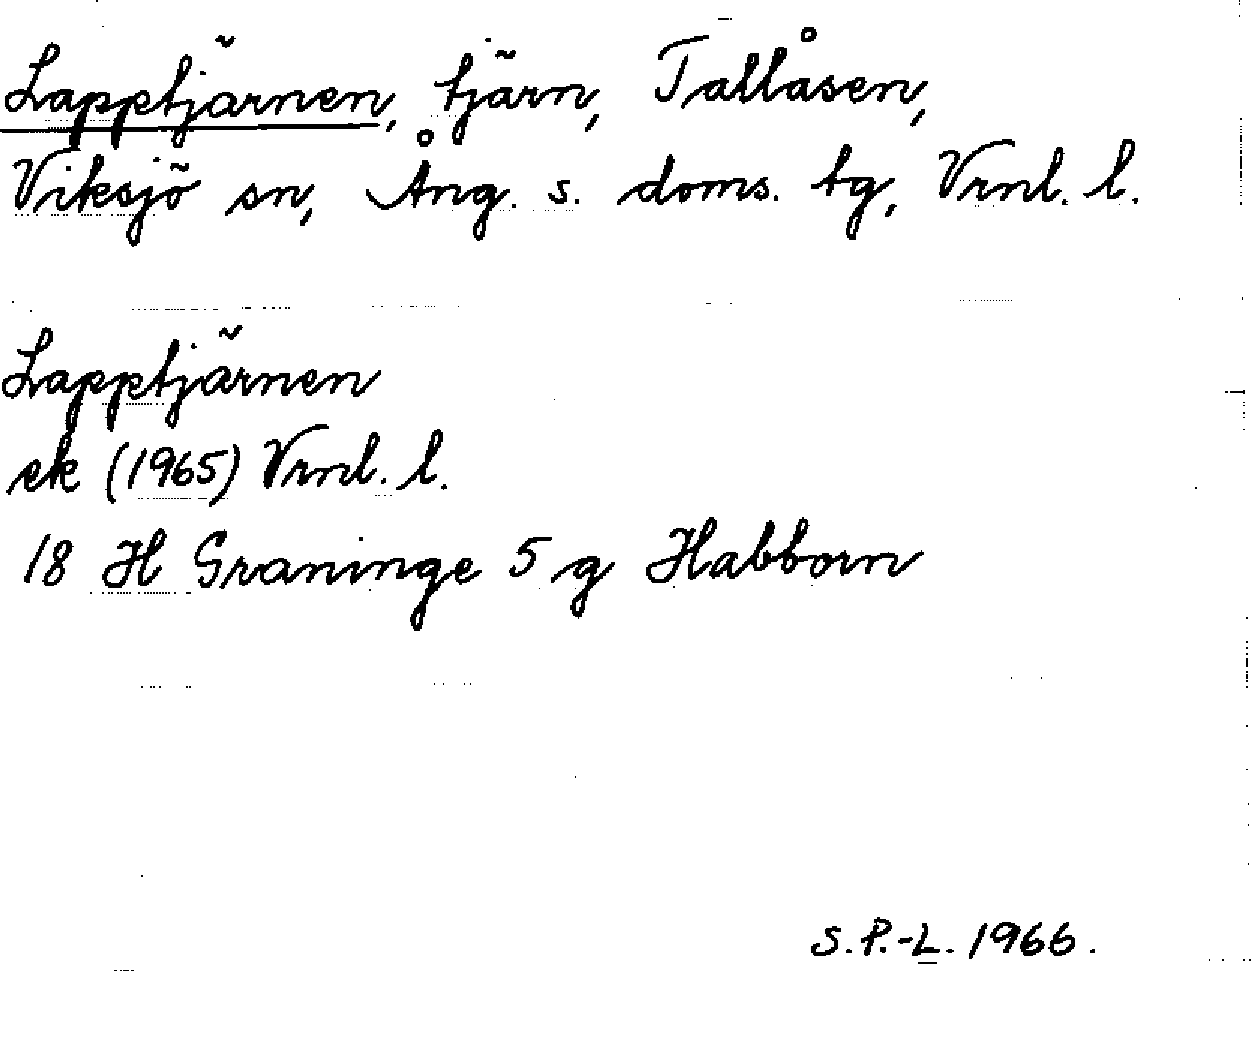 Lapptjärnen, tjärn, Tallåsen,
Viksjö sn, Ång. s. doms. tg, Vrnl. l.
Lapptjärnen
ek (1965) Vrnl. l.
18 H Graninge 5 g Habborn
S.P.-L. 1966.